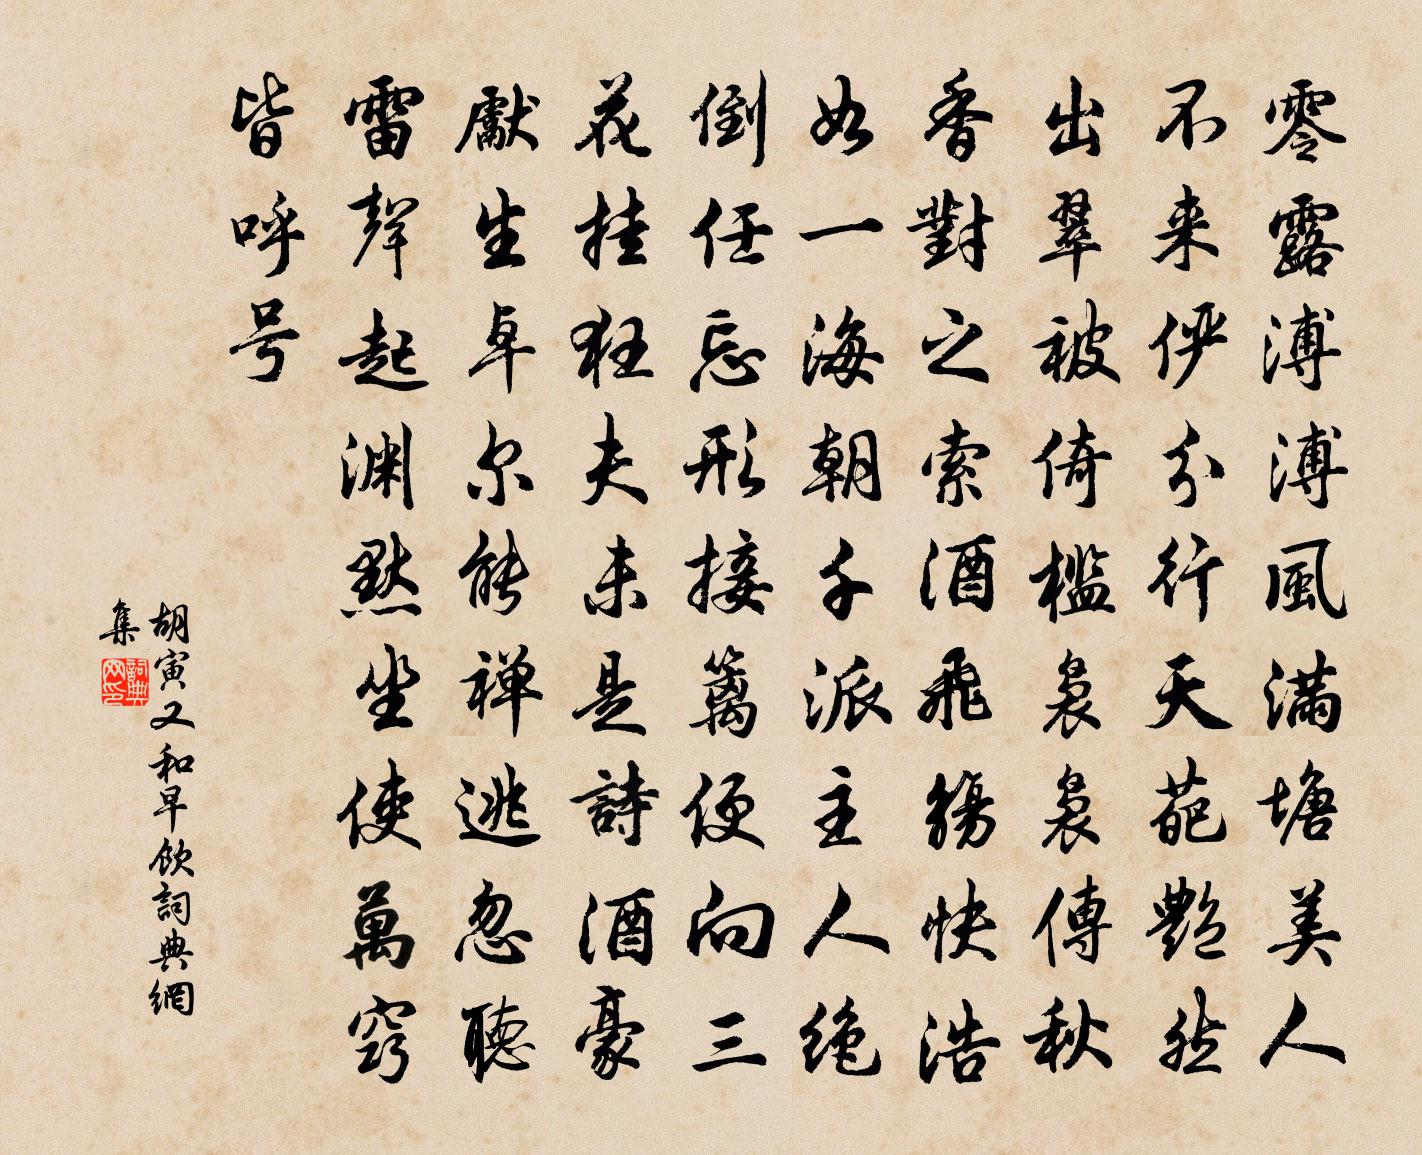 零露溥溥風滿塘美人
不来儼分行天葩艷然
出翠被倚檻裊裊傳秋
香對之索酒飛觴快浩
如一海朝千派主人絶
倒任忘形接籬便向三
花挂狂夫未是詩酒豪
獻生卓尔能禅逃忽聽
雷聲起淵默坐使萬竅
皆呼号
胡寅又和早飲詞典網
集
詞典网印